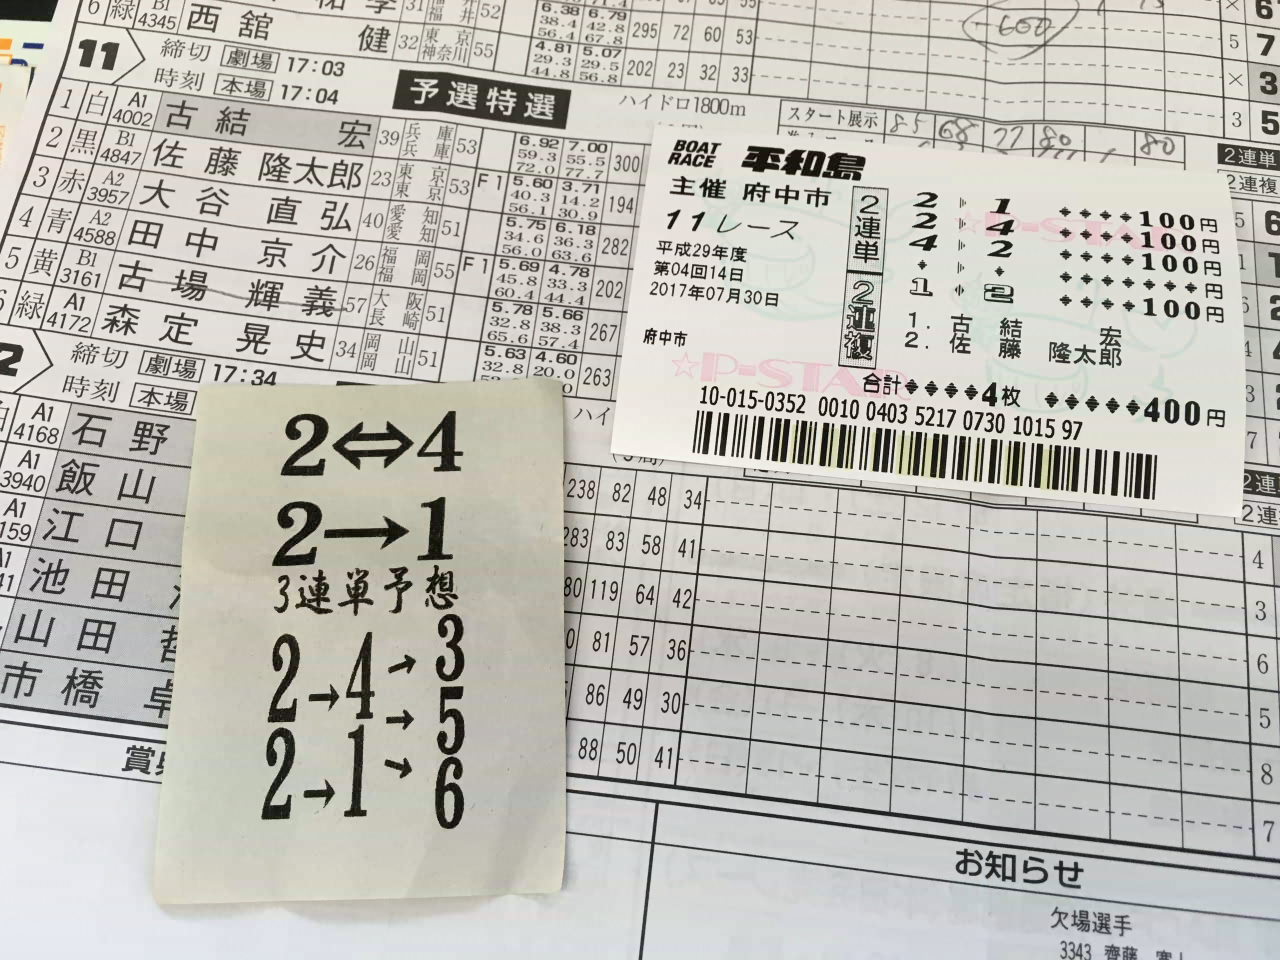 6 緑 B1 4345 西舘 健 32 東京 神奈川 55
4.81 5.07
29.3 29.5
44.8 56.8
295 72 60 53
202 23 32 33
600
11 締切時刻 劇場 17:03
本場 17:04
予選特選 ハイドロ1800m
スタート展示
1 白 A1 4002 古結 宏 39 兵庫 兵庫 53
6.92 7.00
59.3 55.5
72.0 77.7
300
2 黒 B1 4847 佐藤 隆太郎 23 東京 東京 53 F1
5.60 3.71
40.3 14.2
56.1 30.9
194
3 赤 A2 3957 大谷 直弘 40 愛知 愛知 51
5.75 6.18
34.6 36.3
56.0 63.6
282
4 青 A2 4588 田中 京介 26 福岡 福岡 55 F1
5.69 4.78
45.8 33.3
60.4 44.4
202
5 黄 B1 3161 古場 輝義 57 大阪 長崎 51
5.78 5.66
32.8 38.3
65.6 57.4
267
6 緑 A1 4172 森定 晃史 34 岡山 岡山 51
5.63 4.60
32.8 20.0
263
締切時刻 劇場 17:34
本場
A1 4168 石野
A1 3940 飯山
江口
池田
山田
市橋
238 82 48 34
283 83 58 41
80 119 64 42
81 57 36
86 49 30
88 50 41
BOAT RACE 平和島
主催 府中市
11レース
平成29年度
第04回14日
2017年07月30日
府中市
2連単
2 1 100円
2 4 100円
4 2 100円
円
2連複
1 2 100円
1. 古結 宏
2. 佐藤 隆太郎
☆P-STAR
合計 4枚 400円
10-015-0352 0010 0403 5217 0730 1015 97
2⇔4
2→1
3連単予想
2→4→3
→5
2→1→6
2連単
2連複
お知らせ
欠場選手
3343 齊藤